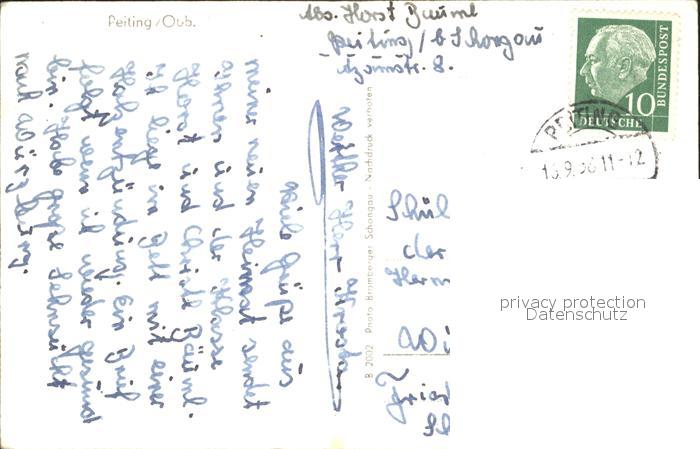 Peiting/Obb.
Abs. Horst Bäuml
Peiting / b Schongau
str. 8.
10
DEUTSCHE
BUNDESPOST
PEITING
13.9.56 11-12
Werther Herr
Viele Grüße aus
meiner neuen Heimat sendet
ihnen und der Klasse
Horst und Christl Bäuml.
Ich liege im Bett mit einer
Halsentzündung. Ein Brief
folgt wenn ich wieder gesund
bin. Habe große Sehnsucht
nach Würzburg.
B 2002 Photo Bromberger Schongau - Nachdruck verboten
Schül
der
Herm
Wü
Fried
Sc
privacy protection
Datenschutz